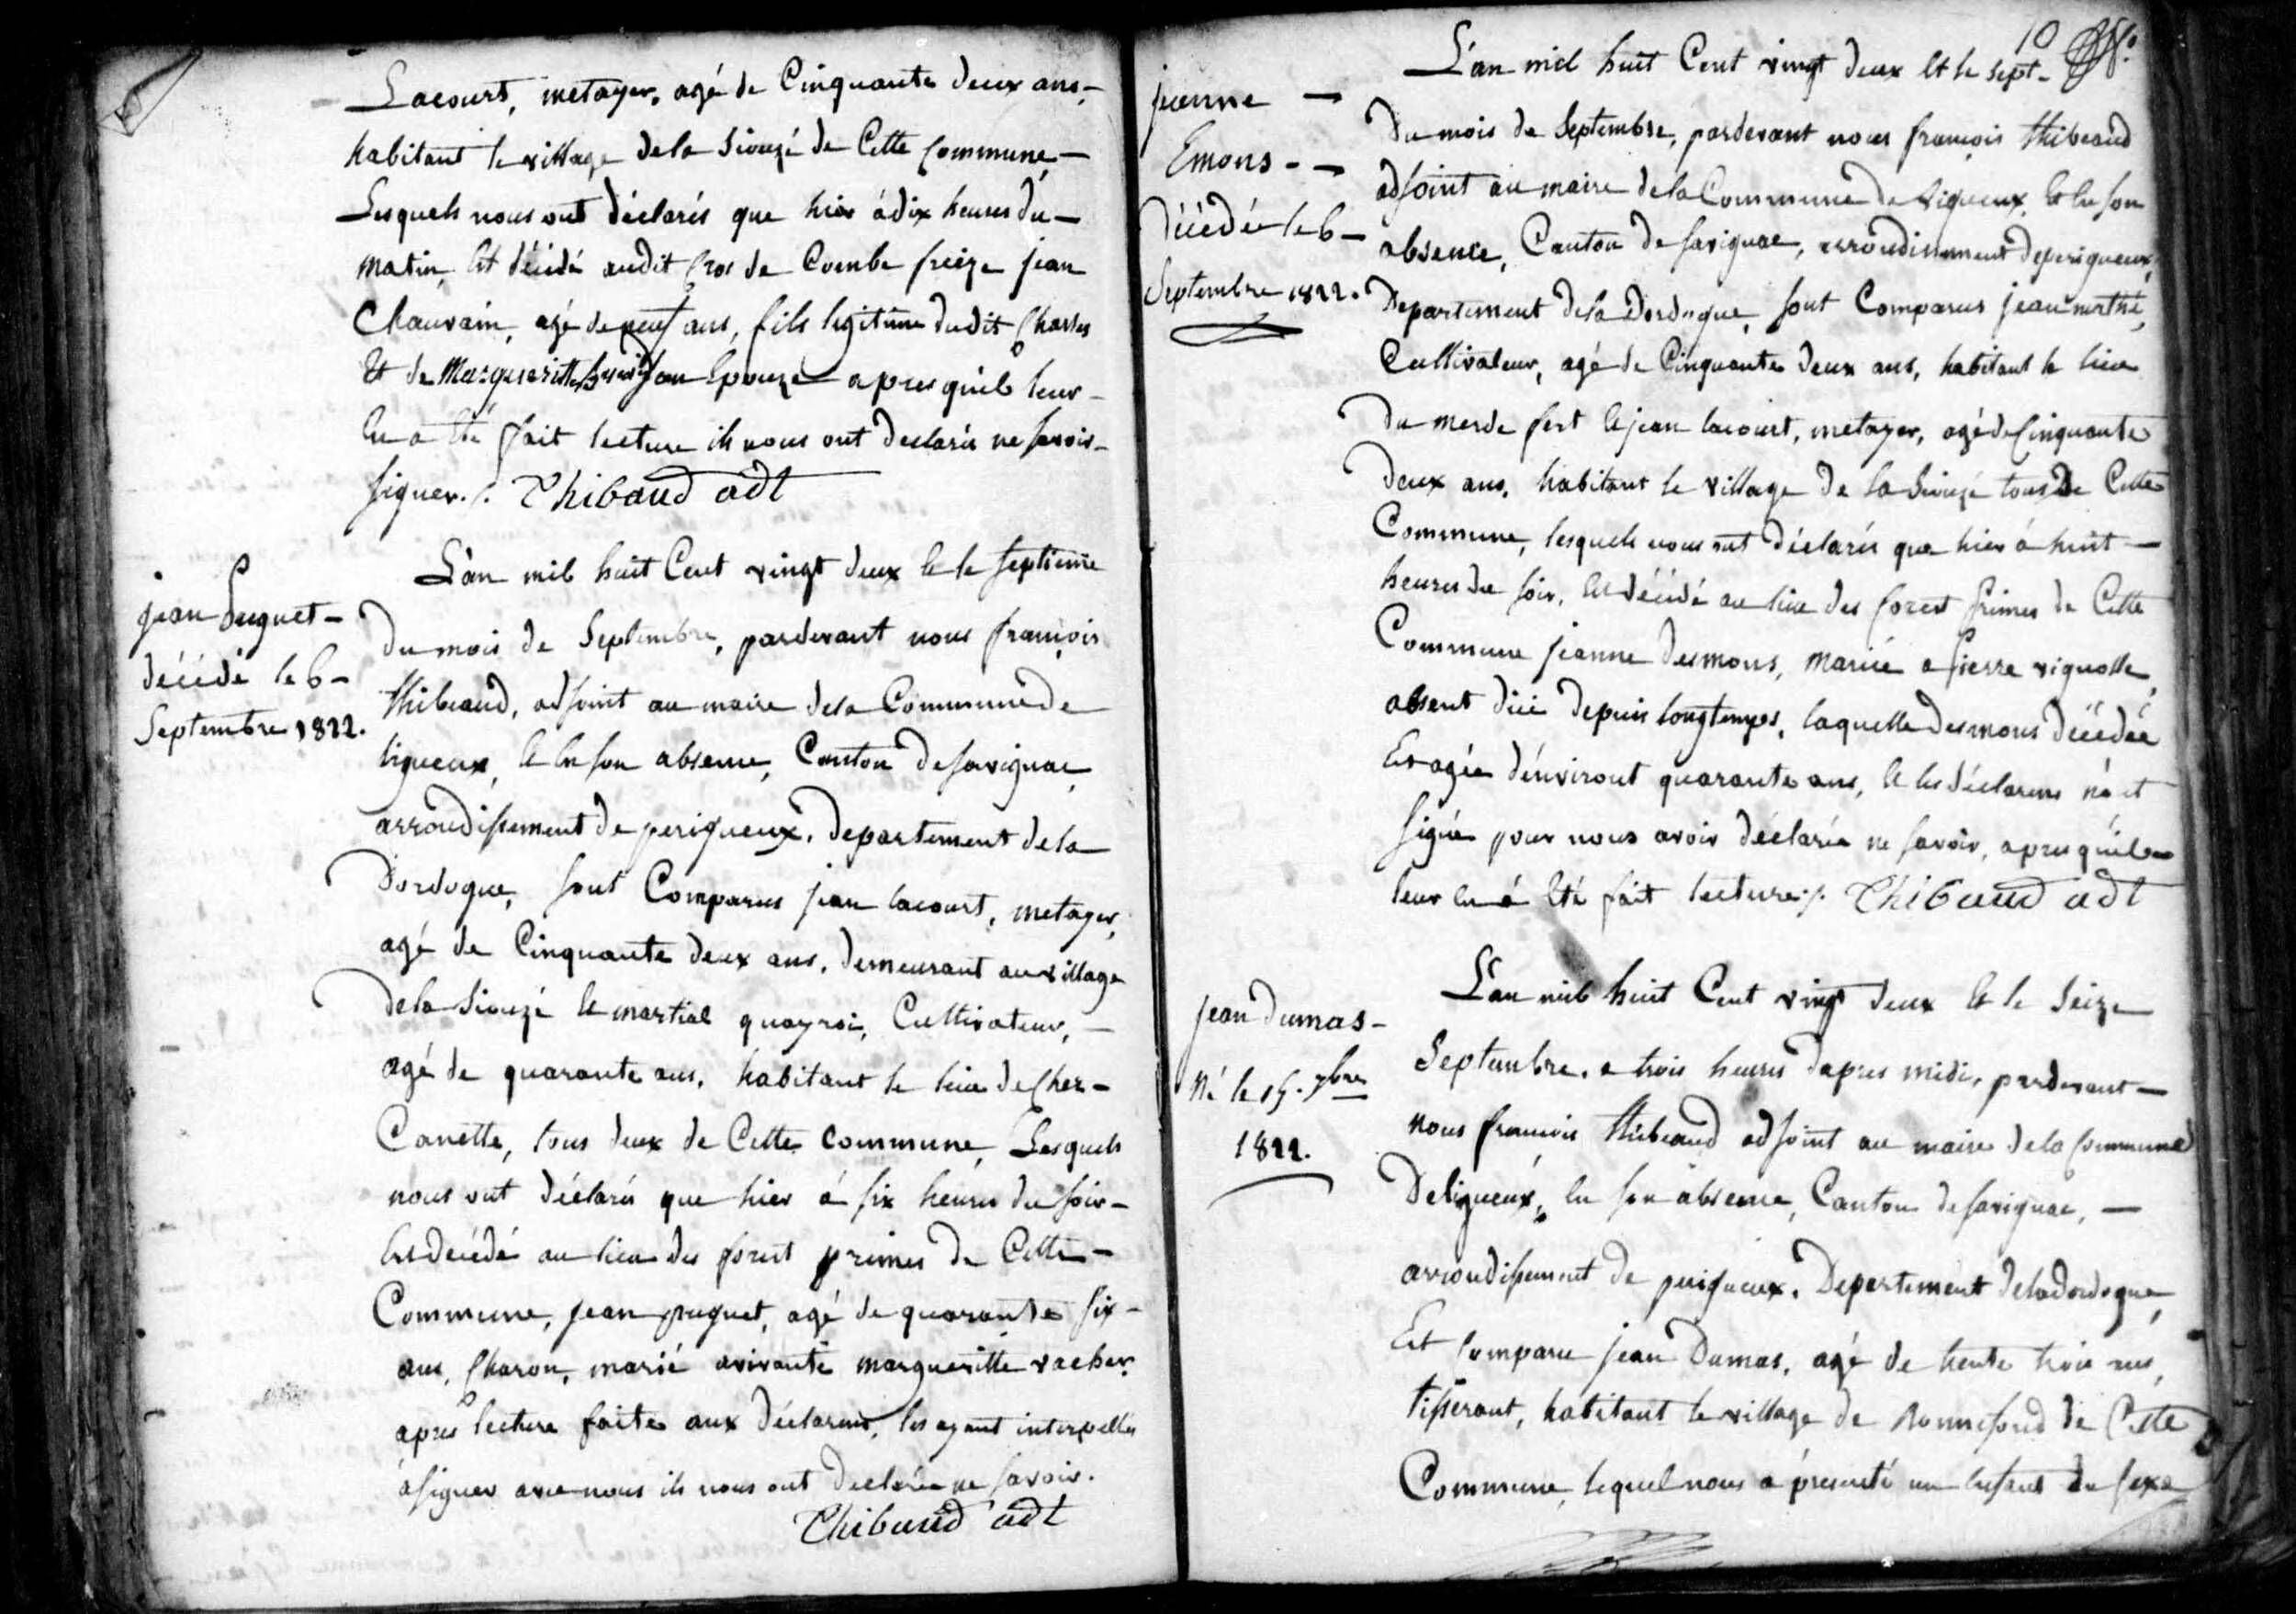 Lacourt, metayer, agé de Cinquante deux ans,
habitant le village dela Siouzé de Cette Commune,
Lesquels nous ont déclarés que hier à dix heures du
matin, Est décédé audit Cros de Combe freize jean
Chauvain, agé de neuf ans, fils légitime dudit Charles
Et de Margueritte son Epouze apres quil leur
En a Eté fait lecture ils nous ont declarés ne savoir
signer. /. Thibaud adt
jean Puguet
décédé le 6
Septembre 1822.
L'an mil huit Cent vingt deux Et le septieme
Du mois de Septembre, pardevant nous françois
thibeaud, adjoint au maire dela Commune de
ligueux, Et En son absence, Canton de savignac,
arroudissement de perigueux, Departement dela
Dordogne, sont Comparus jean lacourt, metayer,
agé de Cinquante deux ans, demeurant au village
dela Siouzé Et martial quayroi, Cultivateur,
agé de quarante ans, habitant le lieu de Cher
Canette, tous deux de Cette Commune, Lesquels
nous ont déclarés que hier à six heures du soir
Est decédé au lieu des forest primes de Cette
Commune, jean puguet, agé de quarante six
ans, Charon, marié avivante margueritte vacher.
apres lecture faite aux Déclarent, les ayant interpellés
à signer avec nous ils nous ont declarés ne savoir.
Thibaud adt
10
jeanne
Emons
Décédée le 6
Septembre 1822.
L'an mil huit Cent vingt deux Et le sept
Du mois de Septembre, pardevant nous françois thibeaud
adjoint au maire dela Commune de ligueux, Et En son
absence, Canton de savignac, arroudissement de perigueux,
Departement dela Dordogne, sont Comparus jean
Cultivateur, agé de Cinquante deux ans, habitant le lieu
Du Et jean lacourt, metayer, agé de Cinquante
Deux ans, habitant le village de la Siouzé tous de Cette
Commune, lesquels nous ont déclarés que hier à huit
heures du soir, Est décédé au lieu des forest primes de Cette
Commune jeanne Desmons, mariée a pierre vignolle,
absent dici depuis longtemps, laquelle desmons décédée
Est agée d'environt quarante ans, Et les déclarens n'ont
signé pour nous avoir déclarée ne savoir, apres quil
leur En a Eté fait lecture /. Thibaud adt
jean Dumas
Né le 15. 7bre
1822.
L'an mil huit Cent vingt deux Et le Seize
Septembre, a trois heures d'apres midi, pardevant
nous françois thibeaud adjoint au maire dela Commune
De ligueux, En son absence, Canton de savignac,
arroudissement de perigueux, Departement dela dordogne,
Est Comparu jean Dumas, agé de trente trois ans,
tisserant, habitant le village de Bonnefond de Cette
Commune, lequel nous a présenté un Enfant du sexe